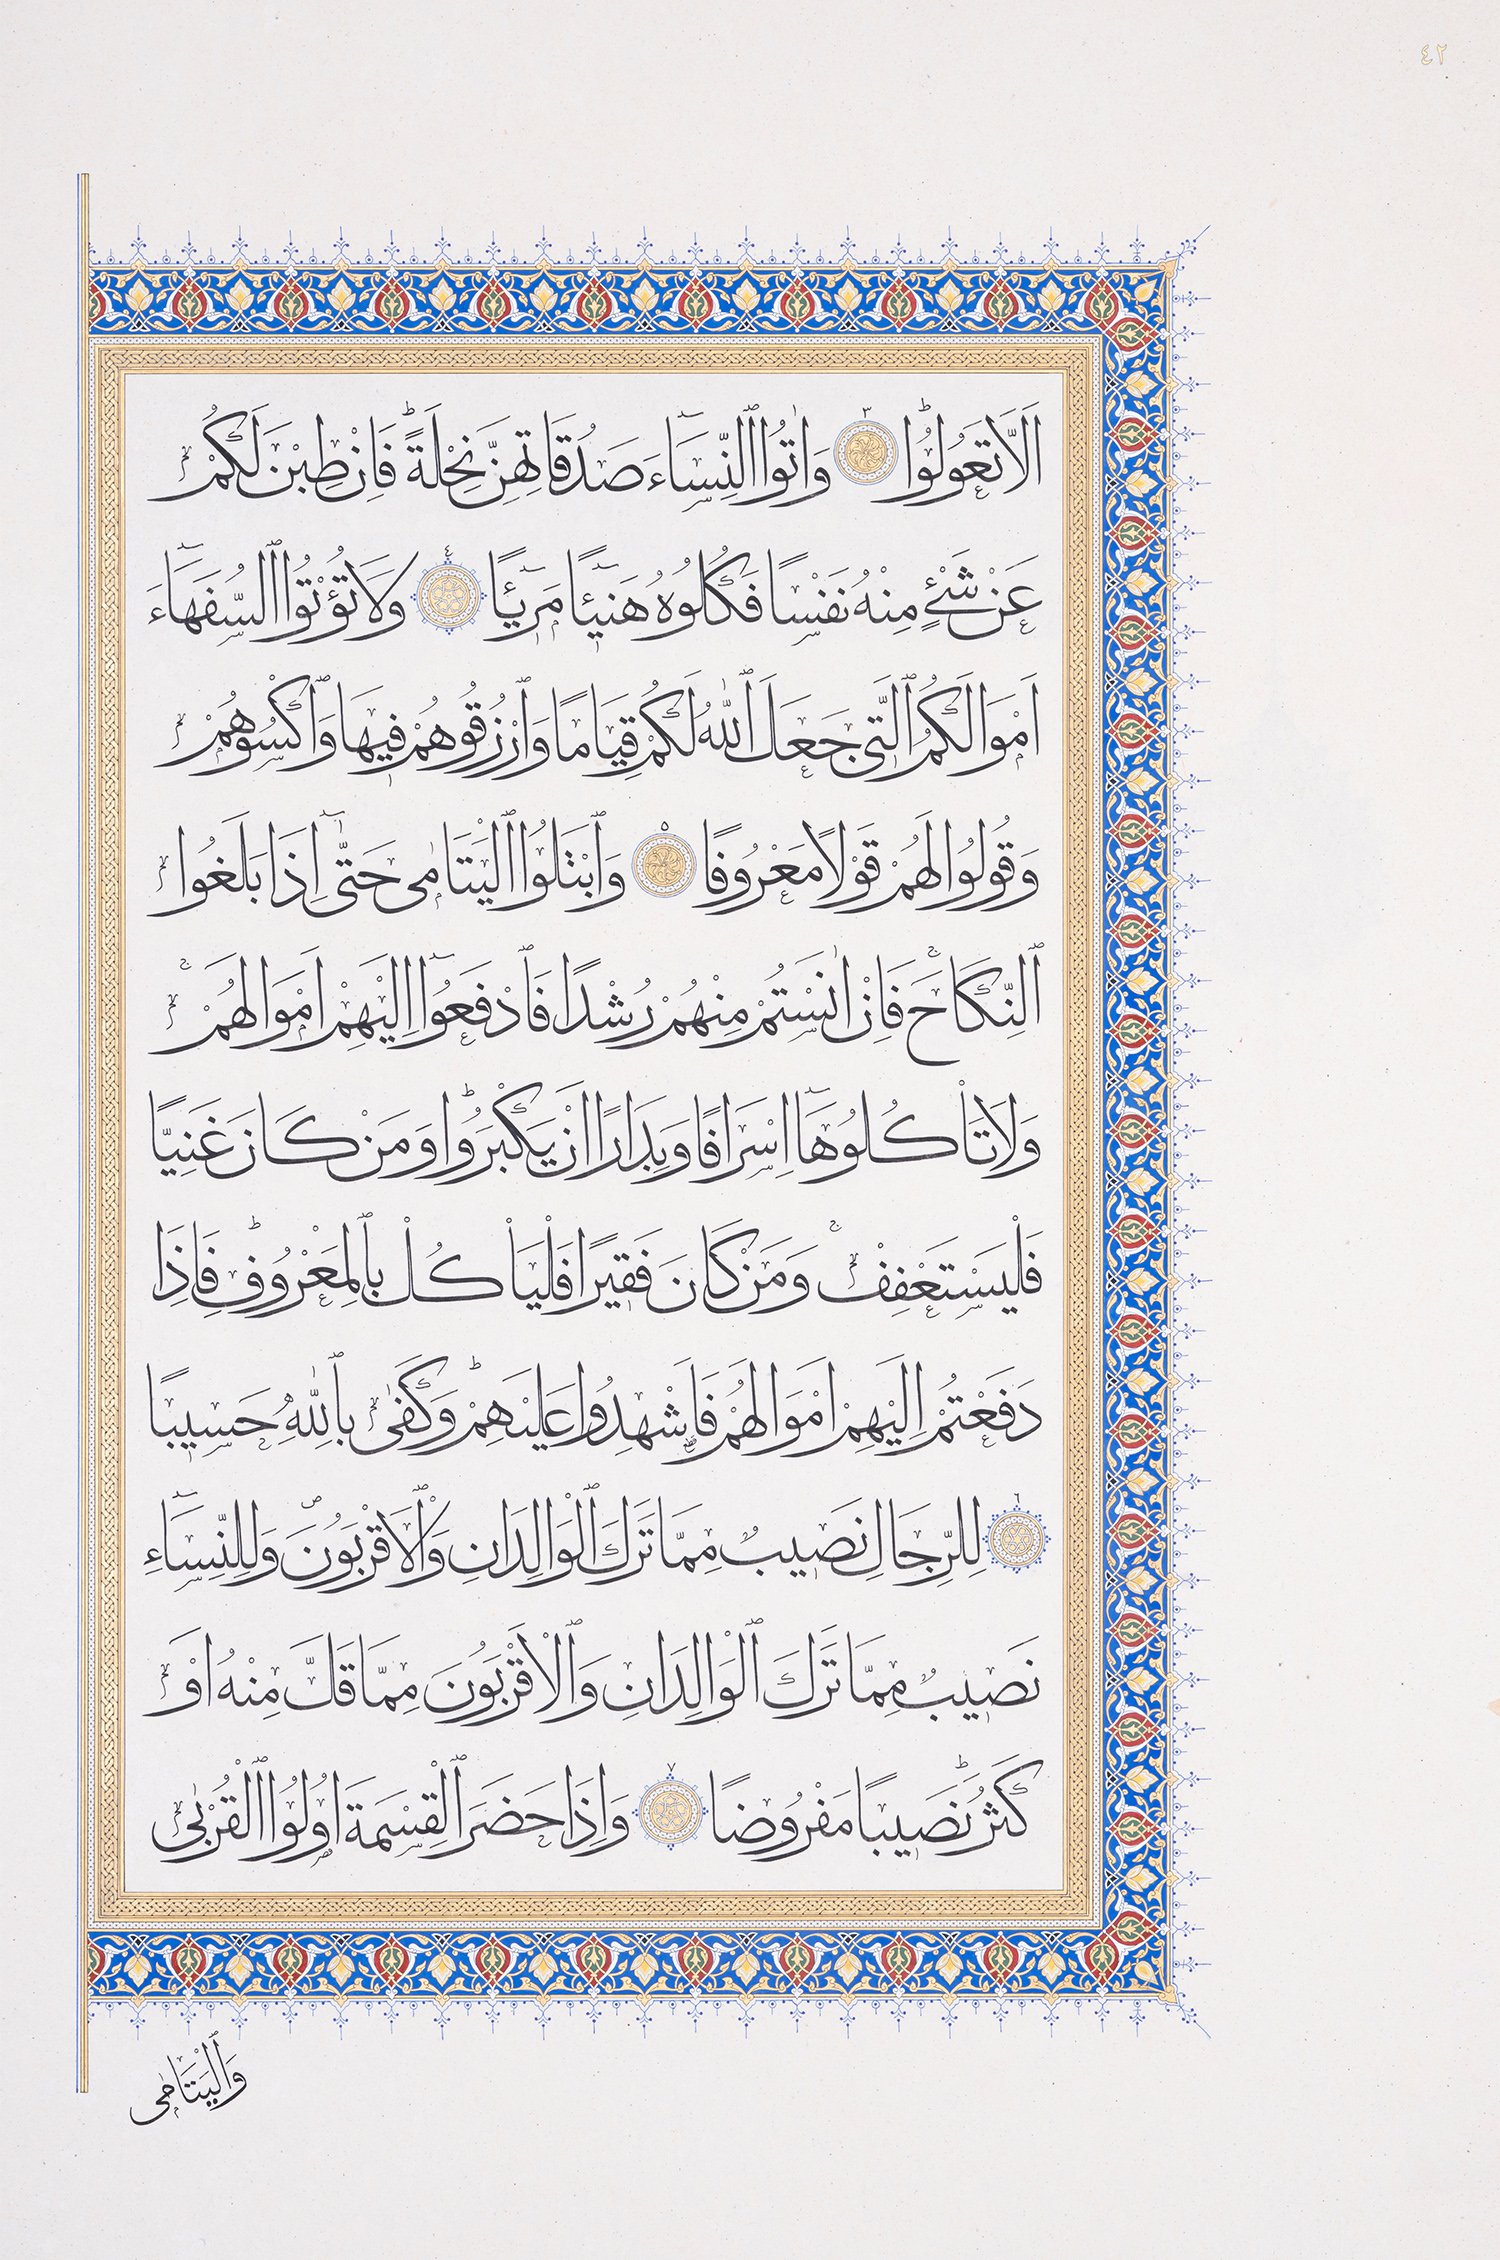 ٤٢
اَلَّا تَعُولُواۜ ٣ وَاٰتُوا النِّسَٓاءَ صَدُقَاتِهِنَّ نِحْلَةًۜ فَاِنْ طِبْنَ لَكُمْ
عَنْ شَيْءٍ مِنْهُ نَفْسًا فَكُلُوهُ هَن۪ٓيـًٔا مَر۪ٓيـًٔا ٤ وَلَا تُؤْتُوا السُّفَهَٓاءَ
اَمْوَالَكُمُ الَّت۪ي جَعَلَ اللّٰهُ لَكُمْ قِيَامًا وَارْزُقُوهُمْ ف۪يهَا وَاكْسُوهُمْ
وَقُولُوا لَهُمْ قَوْلًا مَعْرُوفًا ٥ وَابْتَلُوا الْيَتَامٰى حَتّٰٓى اِذَا بَلَغُوا
النِّكَاحَۚ فَاِنْ اٰنَسْتُمْ مِنْهُمْ رُشْدًا فَادْفَعُٓوا اِلَيْهِمْ اَمْوَالَهُمْۚ
وَلَا تَأْكُلُوهَٓا اِسْرَافًا وَبِدَارًا اَنْ يَكْبَرُواۜ وَمَنْ كَانَ غَنِيًّا
فَلْيَسْتَعْفِفْۚ وَمَنْ كَانَ فَق۪يرًا فَلْيَأْكُلْ بِالْمَعْرُوفِۜ فَاِذَا
دَفَعْتُمْ اِلَيْهِمْ اَمْوَالَهُمْ فَاَشْهِدُوا عَلَيْهِمْۜ وَكَفٰى بِاللّٰهِ حَس۪يبًا
٦ لِلرِّجَالِ نَص۪يبٌ مِمَّا تَرَكَ الْوَالِدَانِ وَالْاَقْرَبُونَۖ وَلِلنِّسَٓاءِ
نَص۪يبٌ مِمَّا تَرَكَ الْوَالِدَانِ وَالْاَقْرَبُونَ مِمَّا قَلَّ مِنْهُ اَوْ
كَثُرَۜ نَص۪يبًا مَفْرُوضًا ٧ وَاِذَا حَضَرَ الْقِسْمَةَ اُو۬لُوا الْقُرْبٰى
وَالْيَتَامٰى